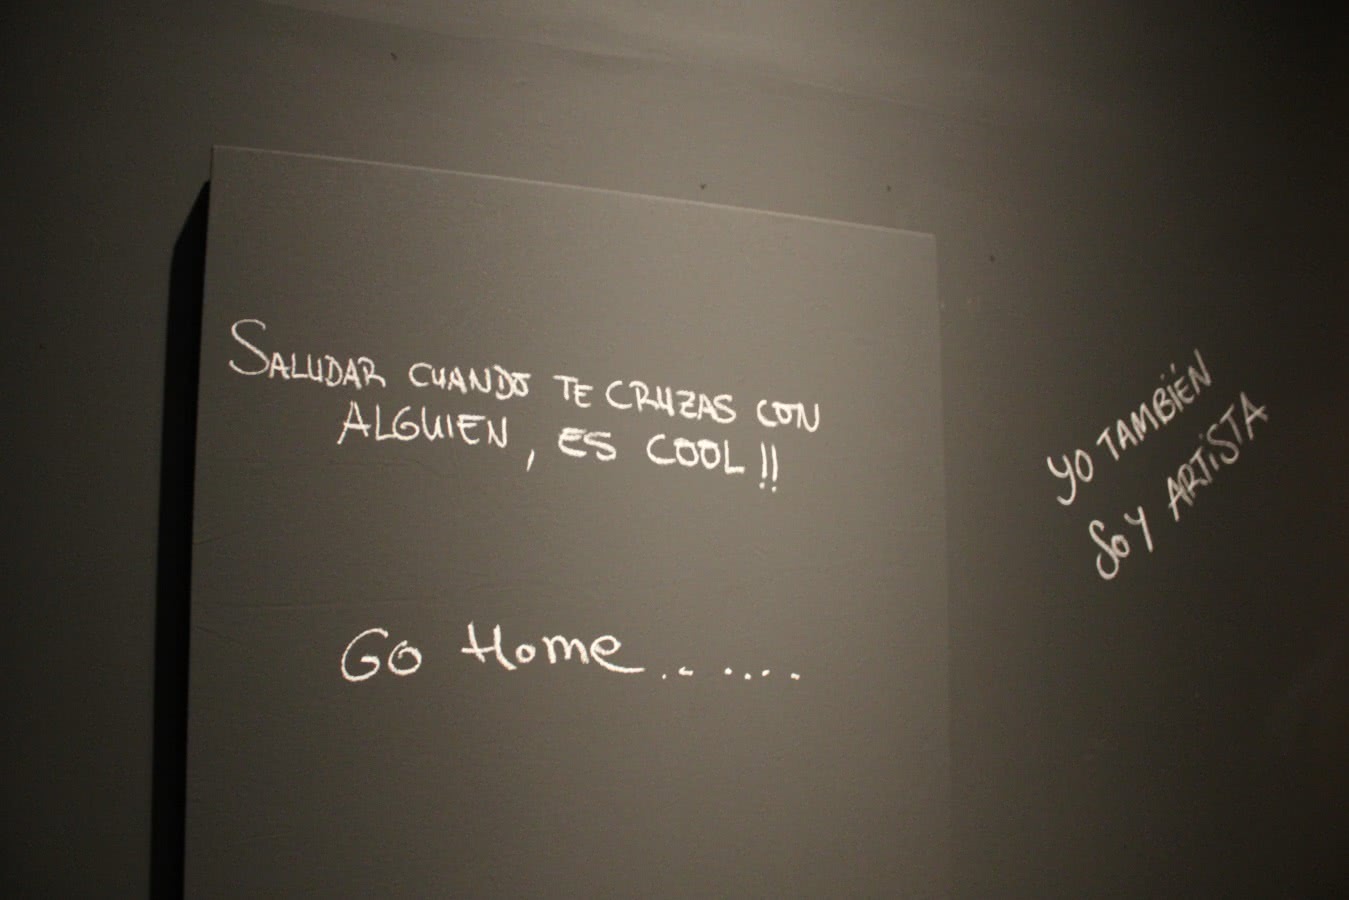 SALUDAR CUANDO TE CRUZAS CON
ALGUIEN, ES COOL!!
Go Home......
YO TAMBiÉN
SOY ARTiSTA